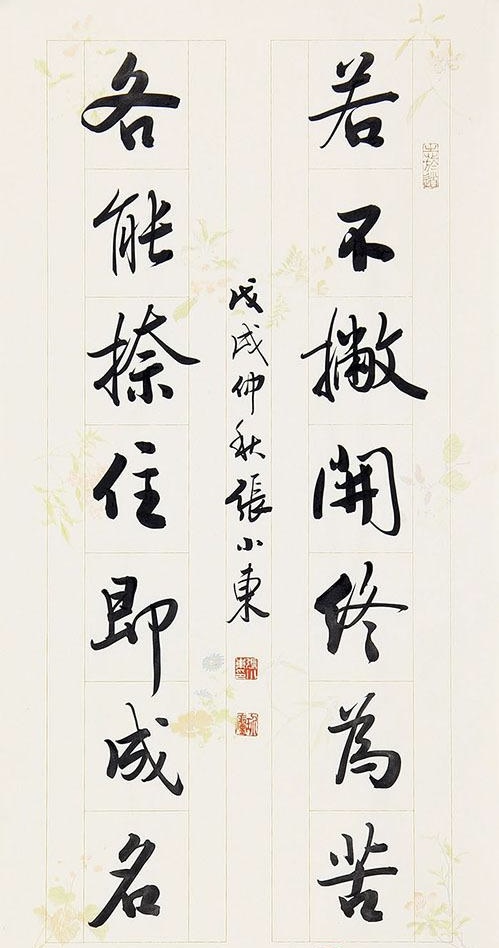 若不撇開終為苦
各能捺住即成名
戊戌仲秋張小東